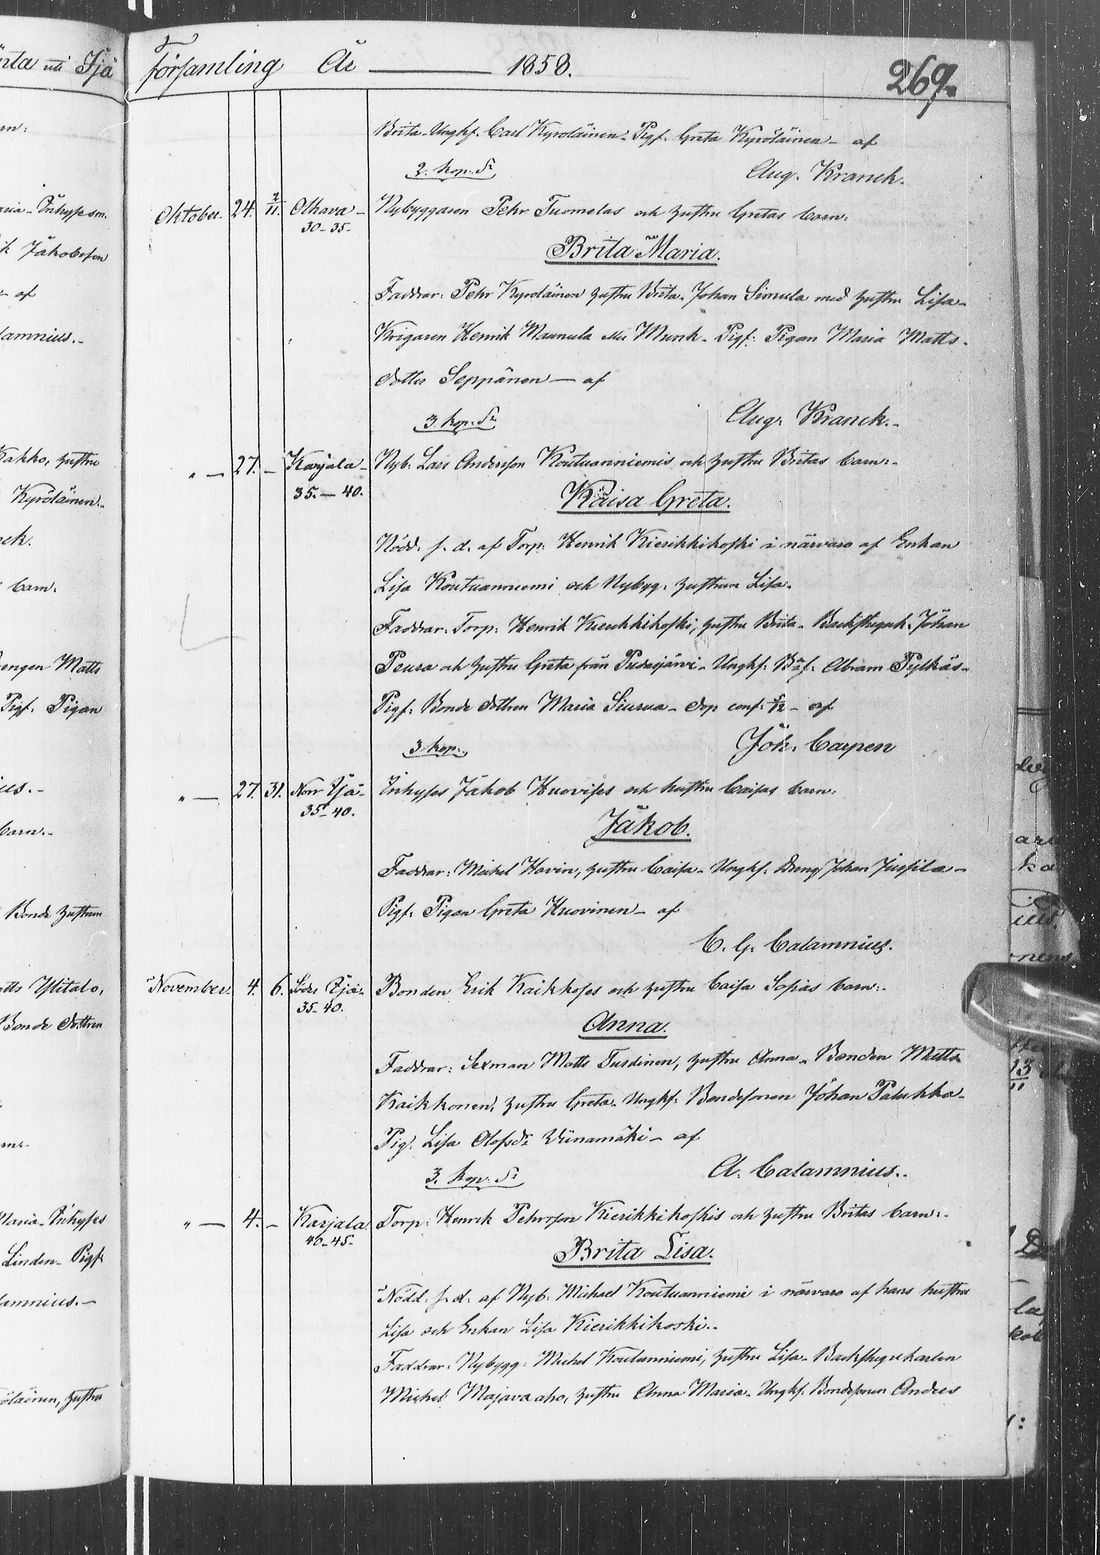 Församling År 1858.
269.
Brita. Ungkf. Carl Kyröläinen. Pigf. Greta Kyröläinen – af
2. kop. Sr
Aug. Kranck.
Oktober. 24. 2/11. Olhava –
30–35.
Nybyggaren Pehr Tuomelas och hustru Gretas barn:
Brita Maria.
Faddrar: Pehr Kyröläinen hustru Brita. Johan Simula med hustru Lisa –
Krigaren Henrik Maunula eller Munk. Pigf: Pigan Maria Matts
dotter Seppänen – af
3 kop. Sr
Aug. Kranck. –
" – 27. – Karjala –
35. – 40.
Nyb. Lars Andersson Koutuanniemis och hustru Britas barn: –
Kaisa Greta.
Nödd. s. d. af Torp. Henrik Kierikkikoski i närvaro af Enkan
Lisa Koutuanniemi och Nybyg. hustrun Lisa.
Faddrar: Torp. Henrik Kierikkikoski, hustru Brita – Backstuguk. Johan
Peura och hustru Greta från Pudasjärvi – Ungkf. Abram Pylkäs –
Pigf: Bonde dottren Maria Siurua – dop conf. – af
3 kop.
Jök. Carpen
" – 27. 31. Norr Ijå –
35–40.
Inhyses Jakob Kuovises och hustru Caisas barn:
Jakob.
Faddrar: Michel Hovin, hustru Caisa – Ungkf: Dreng Johan Jussila –
Pigf. Pigan Greta Kuovinen – af
C. G. Calamnius.
November. 4. 6. Söder Ijå –
35–40.
Bonden Erik Kaikkoses och hustru Caisa Sofias barn: –
Anna.
Faddrar: Sexman Matts Turdinen, hustru Anna – Bonden Matts
Kaikkonen, hustru Greta – Ungkf. Bondesonen Johan Palukka –
Pig. Lisa Olofsdr Viinamäki – af
3. kop. Sr
A. Calamnius. .
" – 4. – Karjala
40–45.
Torp: Henrik Pehrsson Kierikkikoskis och hustru Britas barn: –
Brita Lisa.
Nödd. s. d. af Nyb. Michael Koutuanniemi i närvaro af hans hustru
Lisa och Enkan Lisa Kierikkikoski. –
Faddrar: Nybygg: Michel Koutuanniemi, hustru Lisa – Backstugukarlen
Michel Majavaaho, hustru Anna Maria – Ungkf. Bondesonen Anders